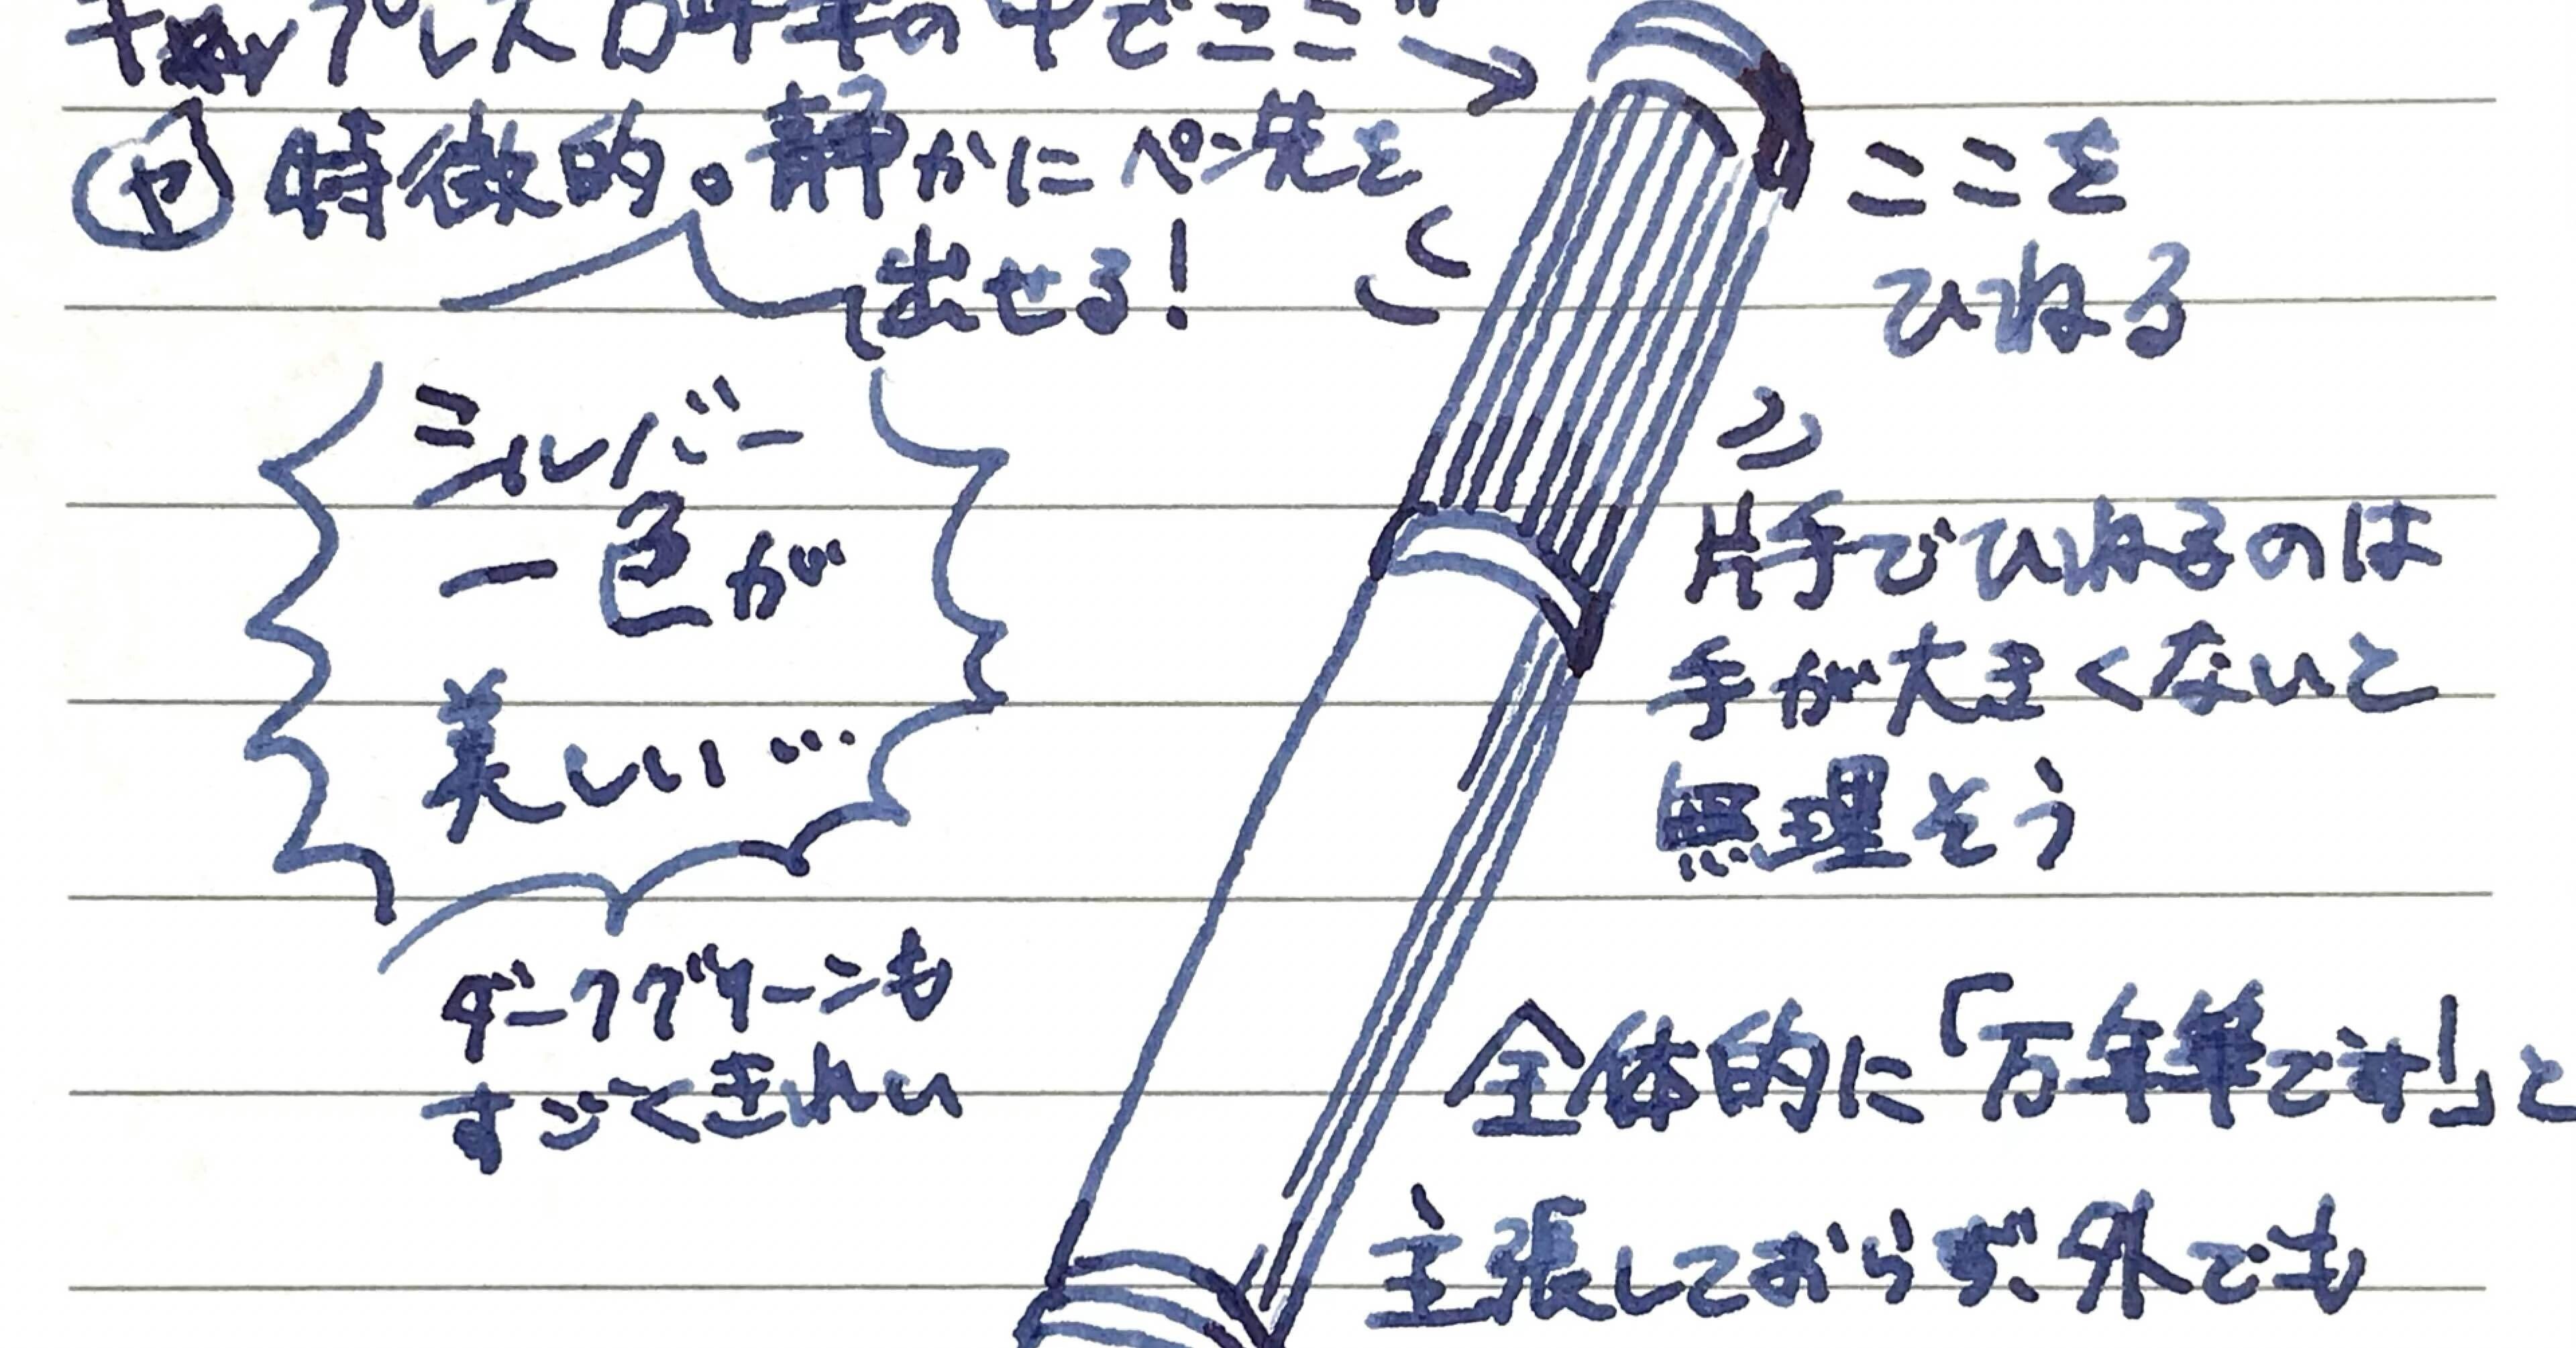 キャップレス万年筆の中でここが
特徴的。静かにペン先を
出せる!
ここを
ひねる
シルバー
一色が
美しい…
片手でひねるのは
手が大きくないと
無理そう
ダークグリーンも
すごくきれい
全体的に「万年筆です!」と
主張しておらず、外でも